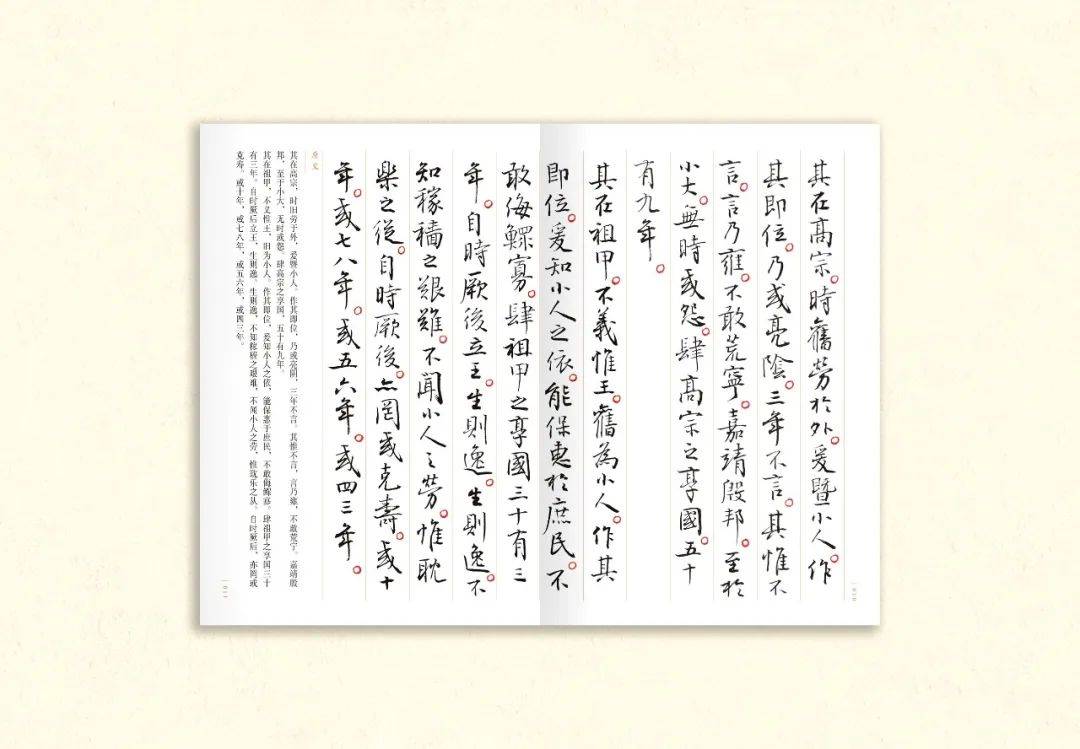 其在高宗。時舊勞於外。爰暨小人。作
其即位。乃或亮陰。三年不言。其惟不
言。言乃雍。不敢荒寧。嘉靖殷邦。至於
小大。無時或怨。肆高宗之享國。五十
有九年。
其在祖甲。不義惟王。舊為小人。作其
即位。爰知小人之依。能保惠於庶民。不
敢侮鰥寡。肆祖甲之享國三十有三
年。自時厥後立王。生則逸。生則逸。不
知稼穡之艱難。不聞小人之勞。惟耽
樂之從。自時厥後。亦罔或克壽。或十
年。或七八年。或五六年。或四三年。
原文
其在高宗,时旧劳于外,爰暨小人。作其即位,乃或亮阴,三年不言。其惟不言,言乃雍。不敢荒宁,嘉靖殷
邦。至于小大,无时或怨。肆高宗之享国,五十有九年。
其在祖甲,不义惟王,旧为小人。作其即位,爰知小人之依,能保惠于庶民,不敢侮鳏寡。肆祖甲之享国三十
有三年。自时厥后立王,生则逸,生则逸,不知稼穑之艰难,不闻小人之劳,惟耽乐之从。自时厥后,亦罔或
克寿。或十年,或七八年,或五六年,或四三年。